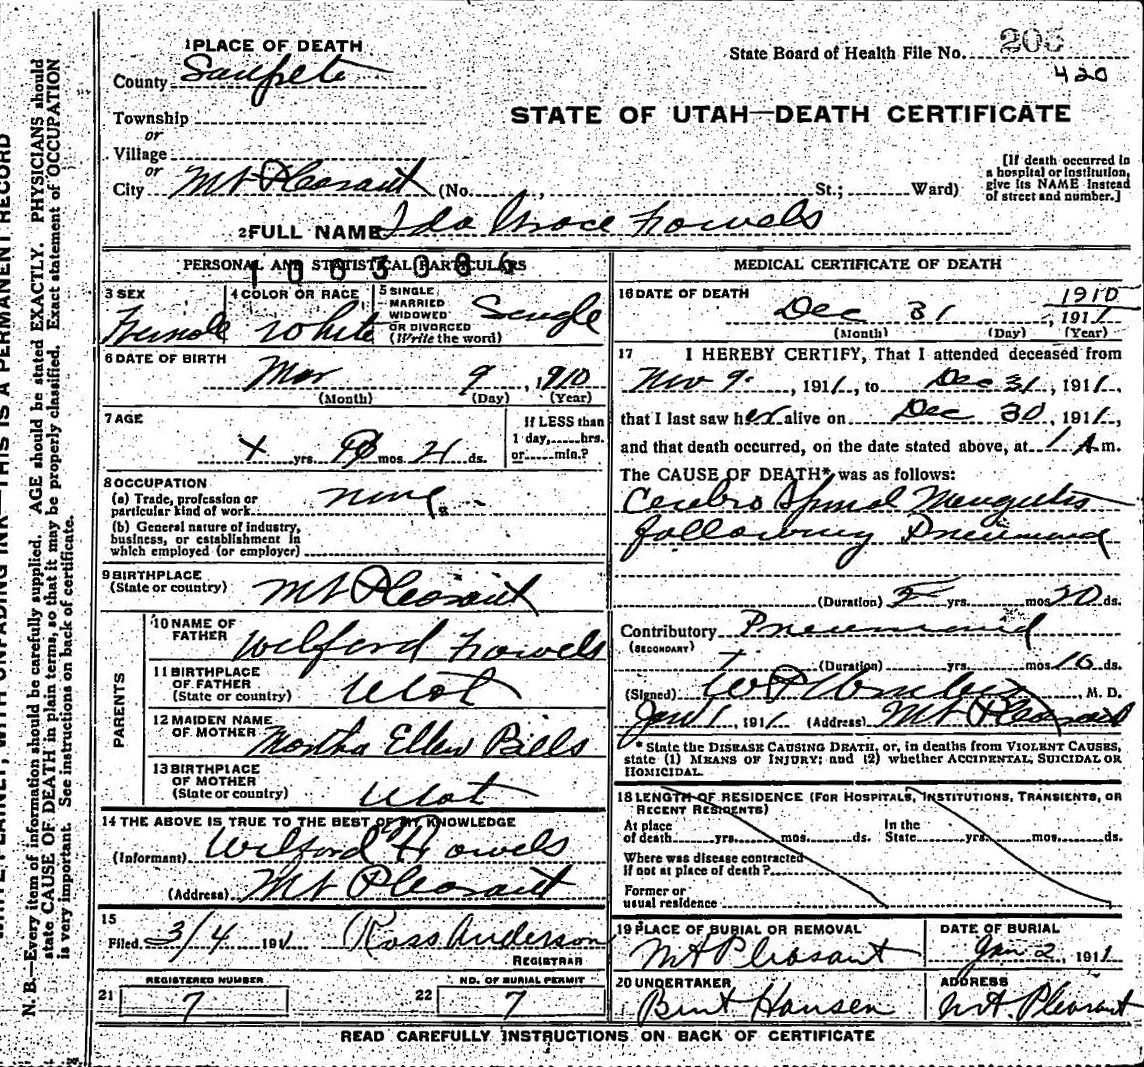 WRITE PLAINLY, WITH UNFADING INK—THIS IS A PERMANENT RECORD
N. B.—Every item of information should be carefully supplied. AGE should be stated EXACTLY. PHYSICIANS should
state CAUSE OF DEATH in plain terms, so that it may be properly classified. Exact statement of OCCUPATION
is very important. See instructions on back of certificate.
1 PLACE OF DEATH
County Sanpete
Township
or
Village
or
City Mt Pleasant (No. , St.; Ward)
State Board of Health File No.
420
STATE OF UTAH—DEATH CERTIFICATE
[If death occurred in
a hospital or institution,
give its NAME instead
of street and number.]
2 FULL NAME Ida Grace Howels
PERSONAL AND STATISTICAL PARTICULARS
1003086
3 SEX
Female
4 COLOR OR RACE
White
5 SINGLE
MARRIED
WIDOWED
OR DIVORCED
(Write the word)
Single
6 DATE OF BIRTH
Mar 9, 1910
(Month) (Day) (Year)
7 AGE
yrs. mos. ds.
If LESS than
1 day, hrs.
or min.?
8 OCCUPATION
(a) Trade, profession or
particular kind of work
none
(b) General nature of industry,
business, or establishment in
which employed (or employer)
9 BIRTHPLACE
(State or country)
Mt Pleasant
PARENTS
10 NAME OF
FATHER
Wilford Howels
11 BIRTHPLACE
OF FATHER
(State or country)
Utah
12 MAIDEN NAME
OF MOTHER
Martha Ellen Bills
13 BIRTHPLACE
OF MOTHER
(State or country)
Utah
14 THE ABOVE IS TRUE TO THE BEST OF MY KNOWLEDGE
(Informant) Wilford Howels
(Address) Mt Pleasant
15
Filed 3/4 1911 Ross Anderson
REGISTRAR
REGISTERED NUMBER
21 7
NO. OF BURIAL PERMIT
22 7
MEDICAL CERTIFICATE OF DEATH
16 DATE OF DEATH
1910
Dec 31, 1911
(Month) (Day) (Year)
17 I HEREBY CERTIFY, That I attended deceased from
Nov 9, 1911, to Dec 31, 1911,
that I last saw her alive on Dec 30, 1911,
and that death occurred, on the date stated above, at 1 A m.
The CAUSE OF DEATH* was as follows:
Cerebro Spinal Mengitis
following Pneumonia
(Duration) yrs. mos 20 ds.
Contributory Pneumonia
(SECONDARY)
(Duration) yrs. mos 16 ds.
(Signed) , M. D.
Jan 1, 1911 (Address) Mt Pleasant
* State the DISEASE CAUSING DEATH, or, in deaths from VIOLENT CAUSES,
state (1) MEANS OF INJURY; and (2) whether ACCIDENTAL, SUICIDAL OR
HOMICIDAL.
18 LENGTH OF RESIDENCE (FOR HOSPITALS, INSTITUTIONS, TRANSIENTS, OR
RECENT RESIDENTS)
At place
of death yrs. mos. ds.
In the
State yrs. mos. ds.
Where was disease contracted
if not at place of death?
Former or
usual residence
19 PLACE OF BURIAL OR REMOVAL
Mt Pleasant
DATE OF BURIAL
Jan 2, 1911
20 UNDERTAKER
Bent Hansen
ADDRESS
Mt. Pleasant
READ CAREFULLY INSTRUCTIONS ON BACK OF CERTIFICATE